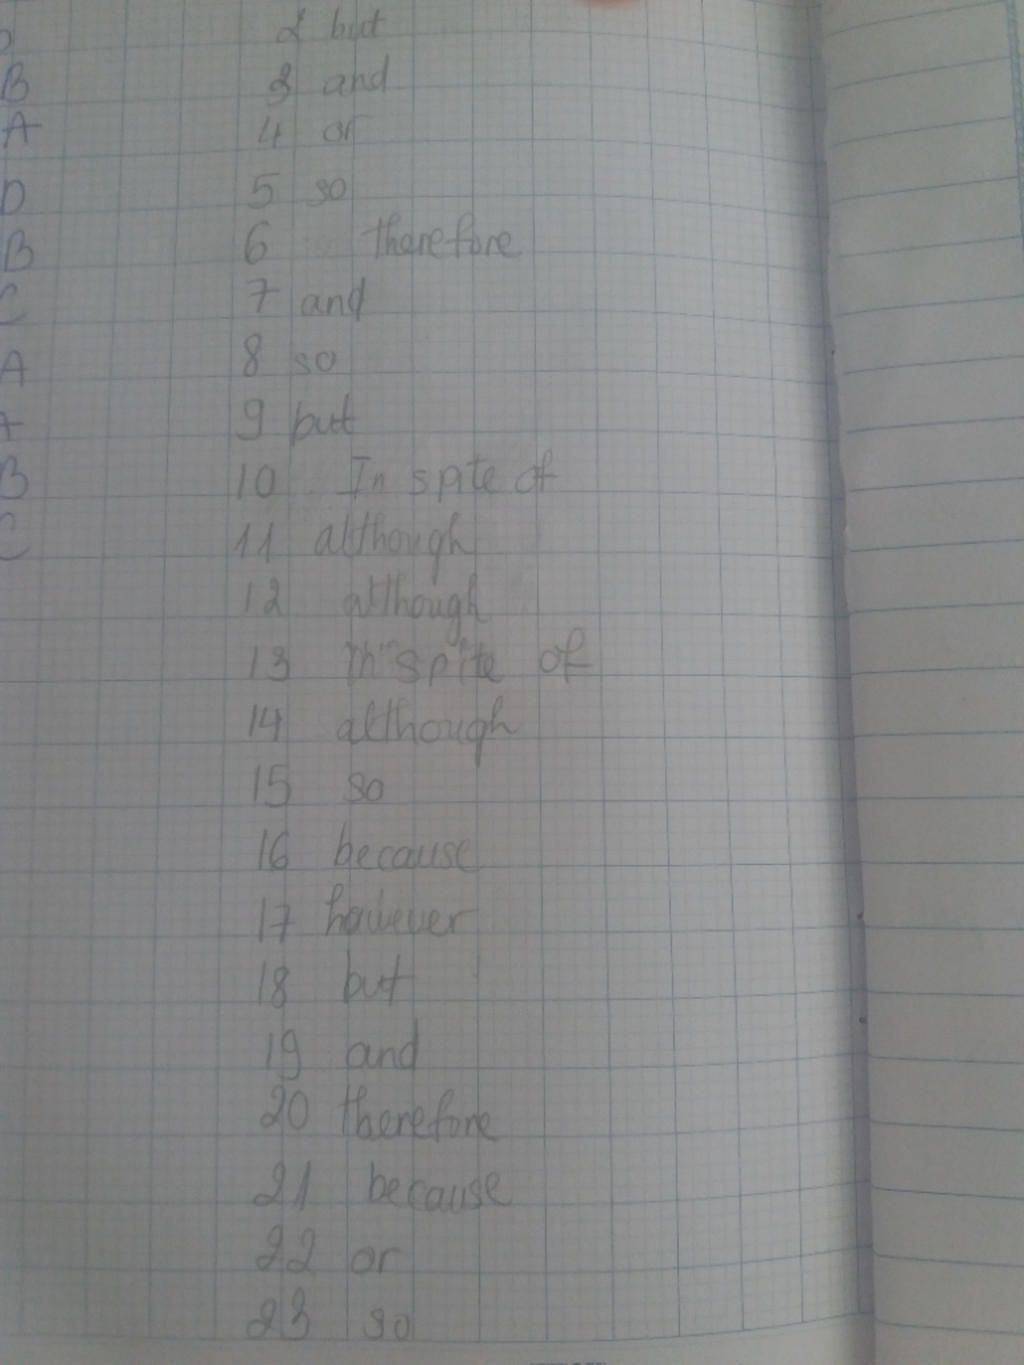 2 but
B 3 and
A 4 or
D 5 so
B 6 therefore
C 7 and
A 8 so
A 9 but
B 10 In spite of
C 11 although
12 although
13 in spite of
14 although
15 so
16 because
17 however
18 but
19 and
20 therefore
21 because
22 or
23 so